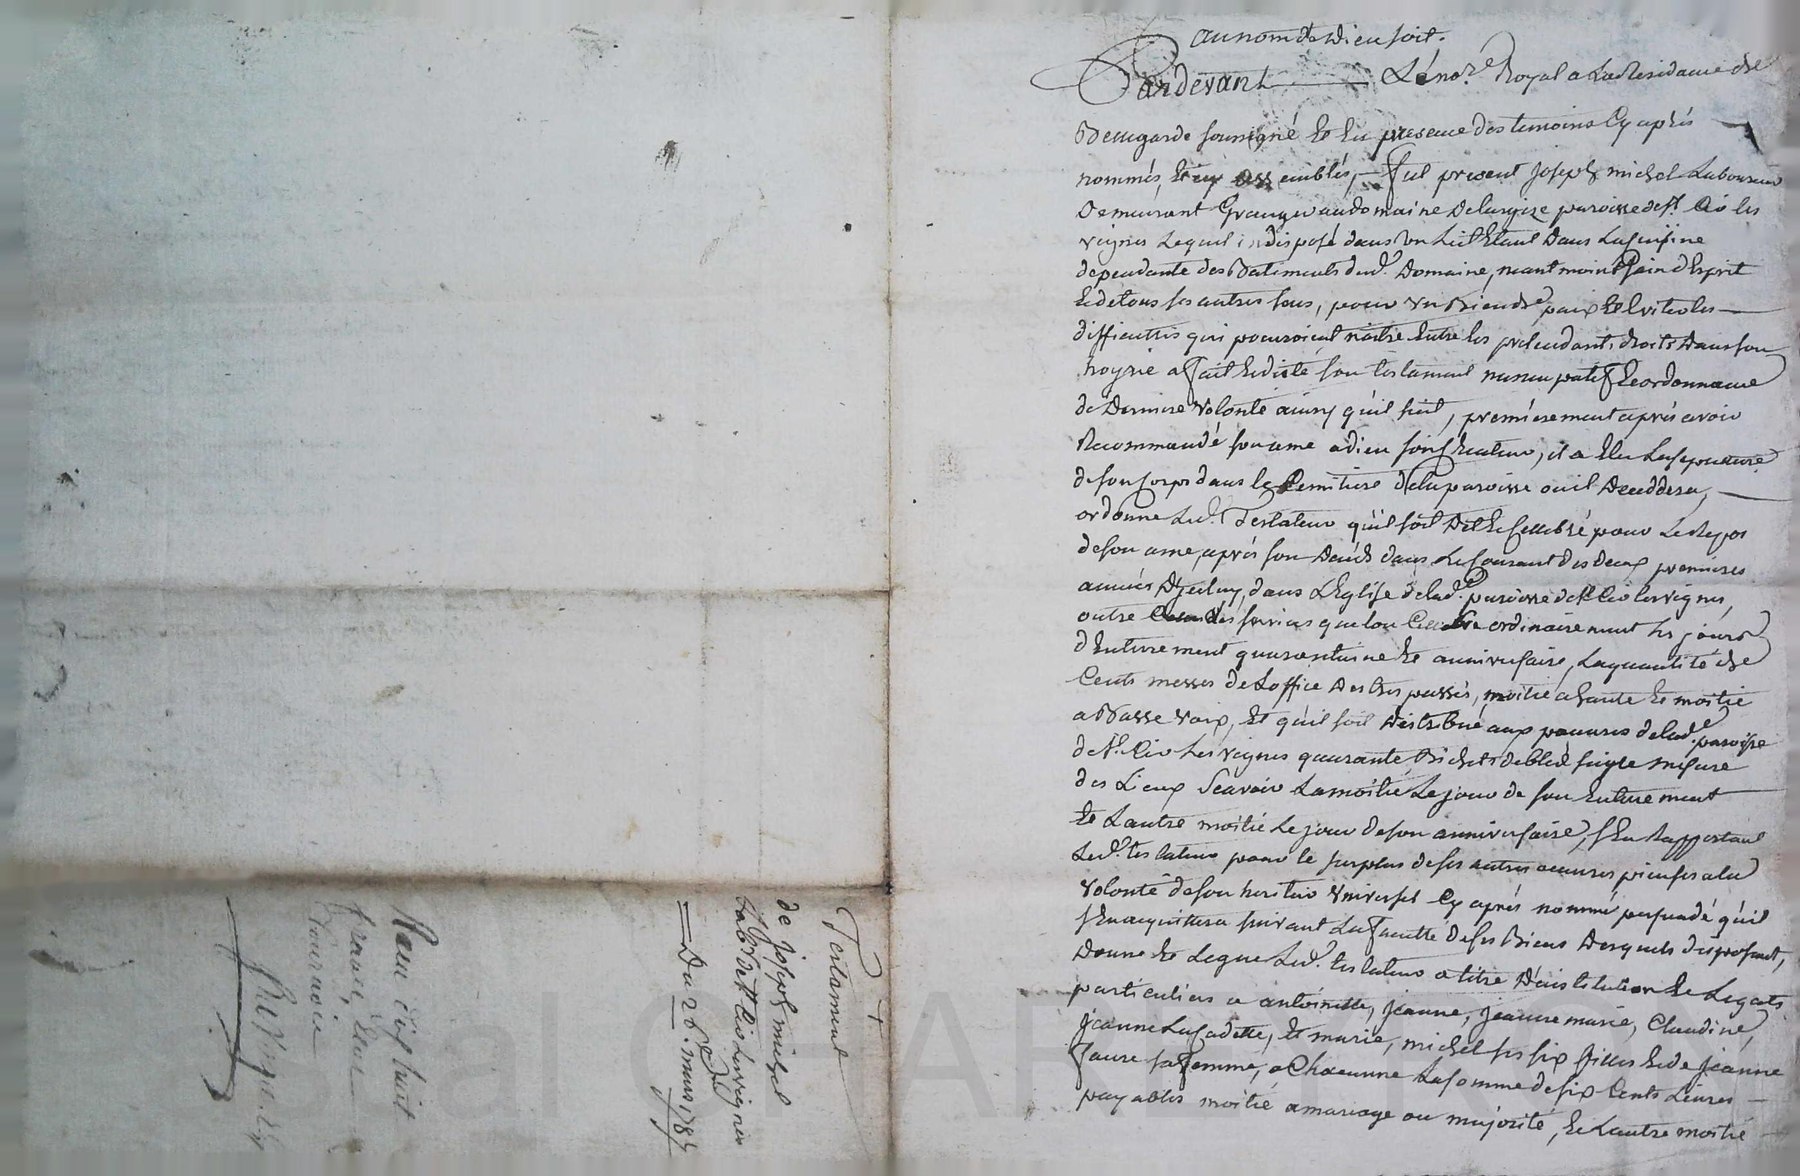 au nom de Dieu soit.
Pardevant Le no.re Royal a La Residance de
Beaugarde soussigné Et En presence des temoins Cy aprés
nommés, Et assemblés, fut present Joseph michel Laboureur
Demeurant Granger au domaine de paroisse de St. Cir les
vignes Lequel indisposé dans un Lict Etant Dans La cuisine
dependante des Batiments dud. Domaine, neantmoins sain d'Esprit
Et de tous ses autres sens, pour Paix Et Eviter les
difficultés qui pouroient naitre Entre les pretendants droits Dans son
hoyrie a fait Et dicté son testament nuncupatif Et ordonnance
de Derniere Volonté ainsy qu'il suit, premierement aprés avoir
Recommandé son ame a dieu son Createur, il a Elu La sepulture
de son Corps dans le Cemitiere de la paroisse ou il Deceddera,
ordonne Led. Testateur qu'il soit Dit Et Cellebré pour Le Repos
de son ame, aprés son Decés dans Le Courant des deux premieres
années D'yceluy, dans L'Eglise de lad.e paroisse de St Cir les vignes,
outre les services que lon Cellebre ordinairement les jours
d'Enterrement quarantaine Et anniversaire, La quantité de
Cents messes de L'office Des trepassés, moitié a haute Et moitié
a Basse voix, Et qu'il soit Distribué aux pauvres de lad.e paroisse
de St. Cir Les vignes quarante Bichets de bled seigle mesure
des Lieux Scavoir La moitié Le jour de son Enterrement
Et L'autre moitié Le jour de son anniversaire, s'En Rapportant
Led. testateur pour le surplus de ses autres oeuvres pieuses a la
Volonté de son heritier Universel Cy aprés nommé persuadé qu'il
s'En acquittera suivant La faculté de ses Biens Desquels disposant,
Donne Et Legue Led. testateur a titre D'institution Et Legats
particuliers a antoinette, Jeanne, Jeanne marie, Claudine,
Jeanne La Cadette, Et marie, michel ses six filles Et de Jeanne
faure sa femme, a Chacunne La somme de six Cents Livres
payables moitié a mariage ou majorité, Et L'autre moitié
Testament
de Joseph michel
Lab.r de St Cir Les vignes
Du 26 mars 178
Receu